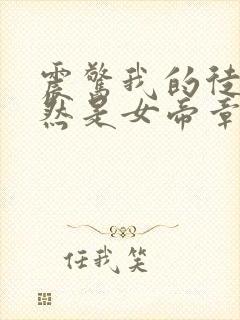 震惊我的徒
然是女帝章
任我笑